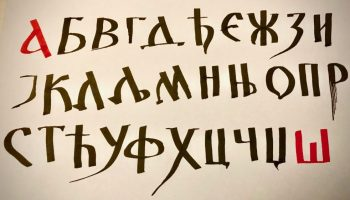 АБВГДЂЕЖЗИ
ЈКЛЉМНЊОПР
СТЋУФХЦЧЏШ